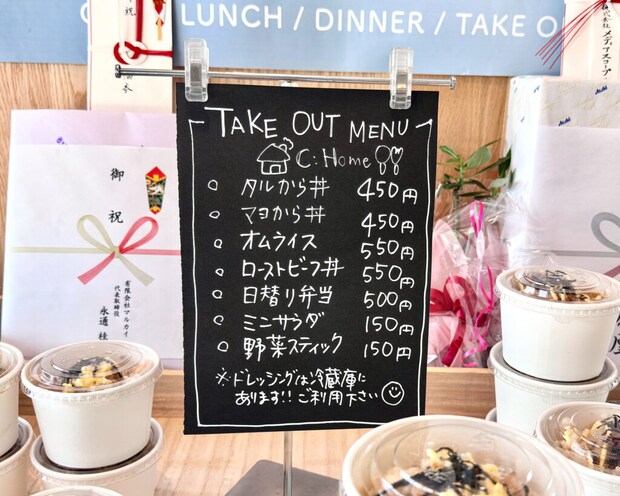 LUNCH / DINNER / TAKE O
TAKE OUT MENU
C:Home
タルから丼 450円
マヨから丼 450円
オムライス 550円
ローストビーフ丼 550円
日替り弁当 500円
ミニサラダ 150円
野菜スティック 150円
※ドレッシングは冷蔵庫に
あります!!ご利用下さい
御祝
有限会社マルカイ
代表取締役
永通 桂
株式会社
メディアスコープ
Asahi